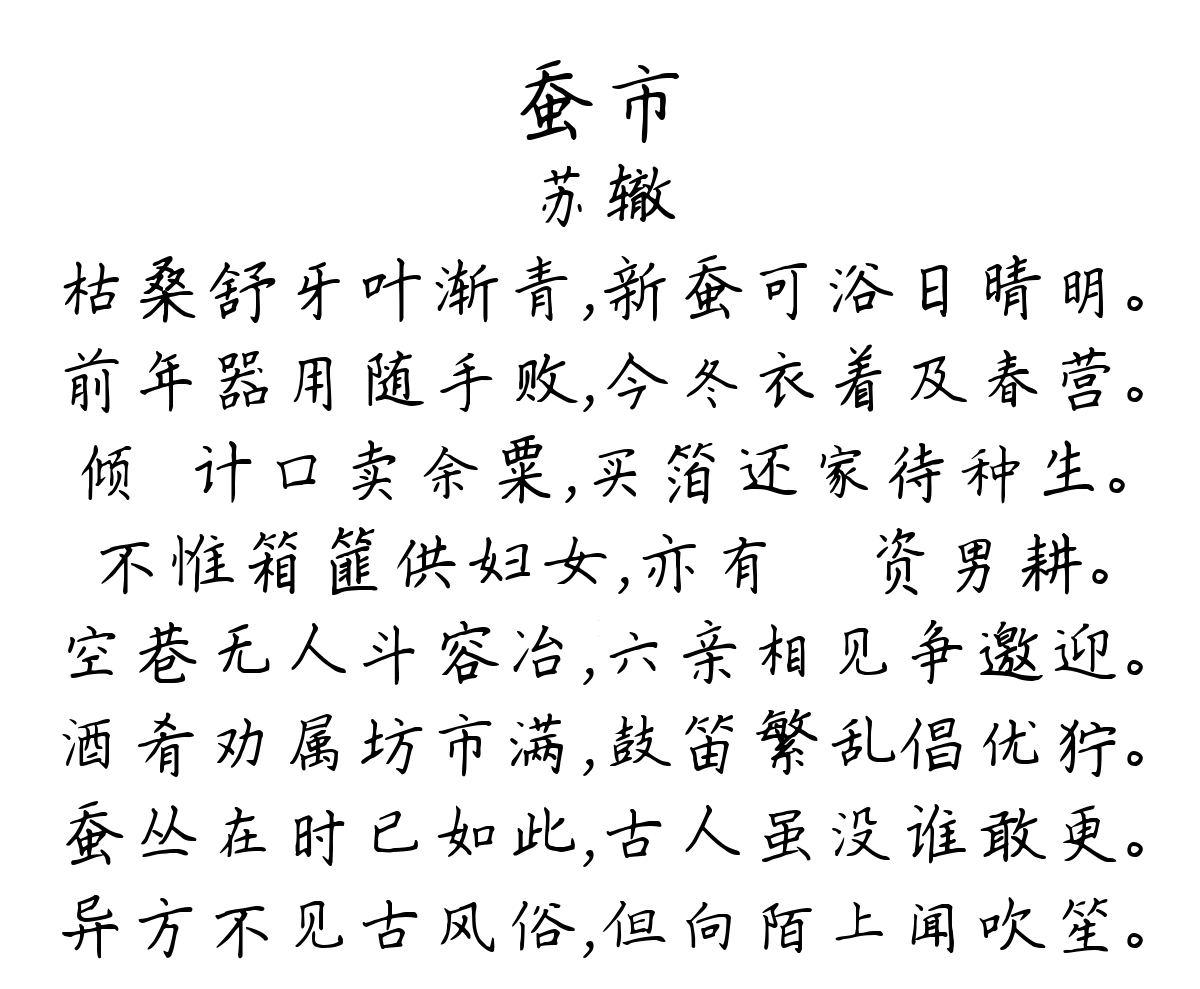 蚕市
苏辙
枯桑舒牙叶渐青,新蚕可浴日晴明。
前年器用随手败,今冬衣着及春营。
倾 计口卖余粟,买箔还家待种生。
不惟箱篚供妇女,亦有 资男耕。
空巷无人斗容冶,六亲相见争邀迎。
酒肴劝属坊市满,鼓笛繁乱倡优狞。
蚕丛在时已如此,古人虽没谁敢更。
异方不见古风俗,但向陌上闻吹笙。